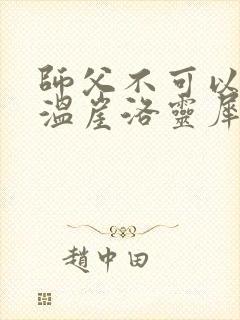 師父不可以
溫崖洛靈犀
趙中田